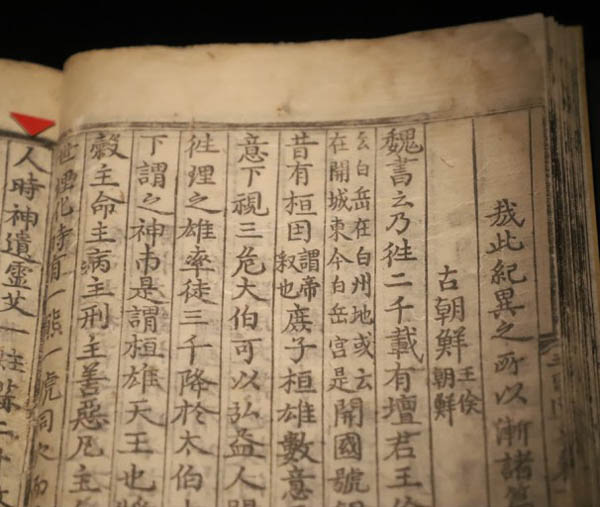 㦲此紀異之所以漸諸
古朝鮮王儉朝鮮
魏書云乃徃二千載有壇君王儉
云白岳在白州地或云
在開城東今白岳宮是
開國號
昔有桓田謂帝釈也庶子桓雄數意
意下視三危大伯可以弘益人
徃理之雄率徒三千降於太伯
下謂之神市是謂桓雄天王也將
穀主命主病主刑主善惡凡主
世理化時有一熊一虎同穴而
人時神遺靈艾一炷蒜二十枚